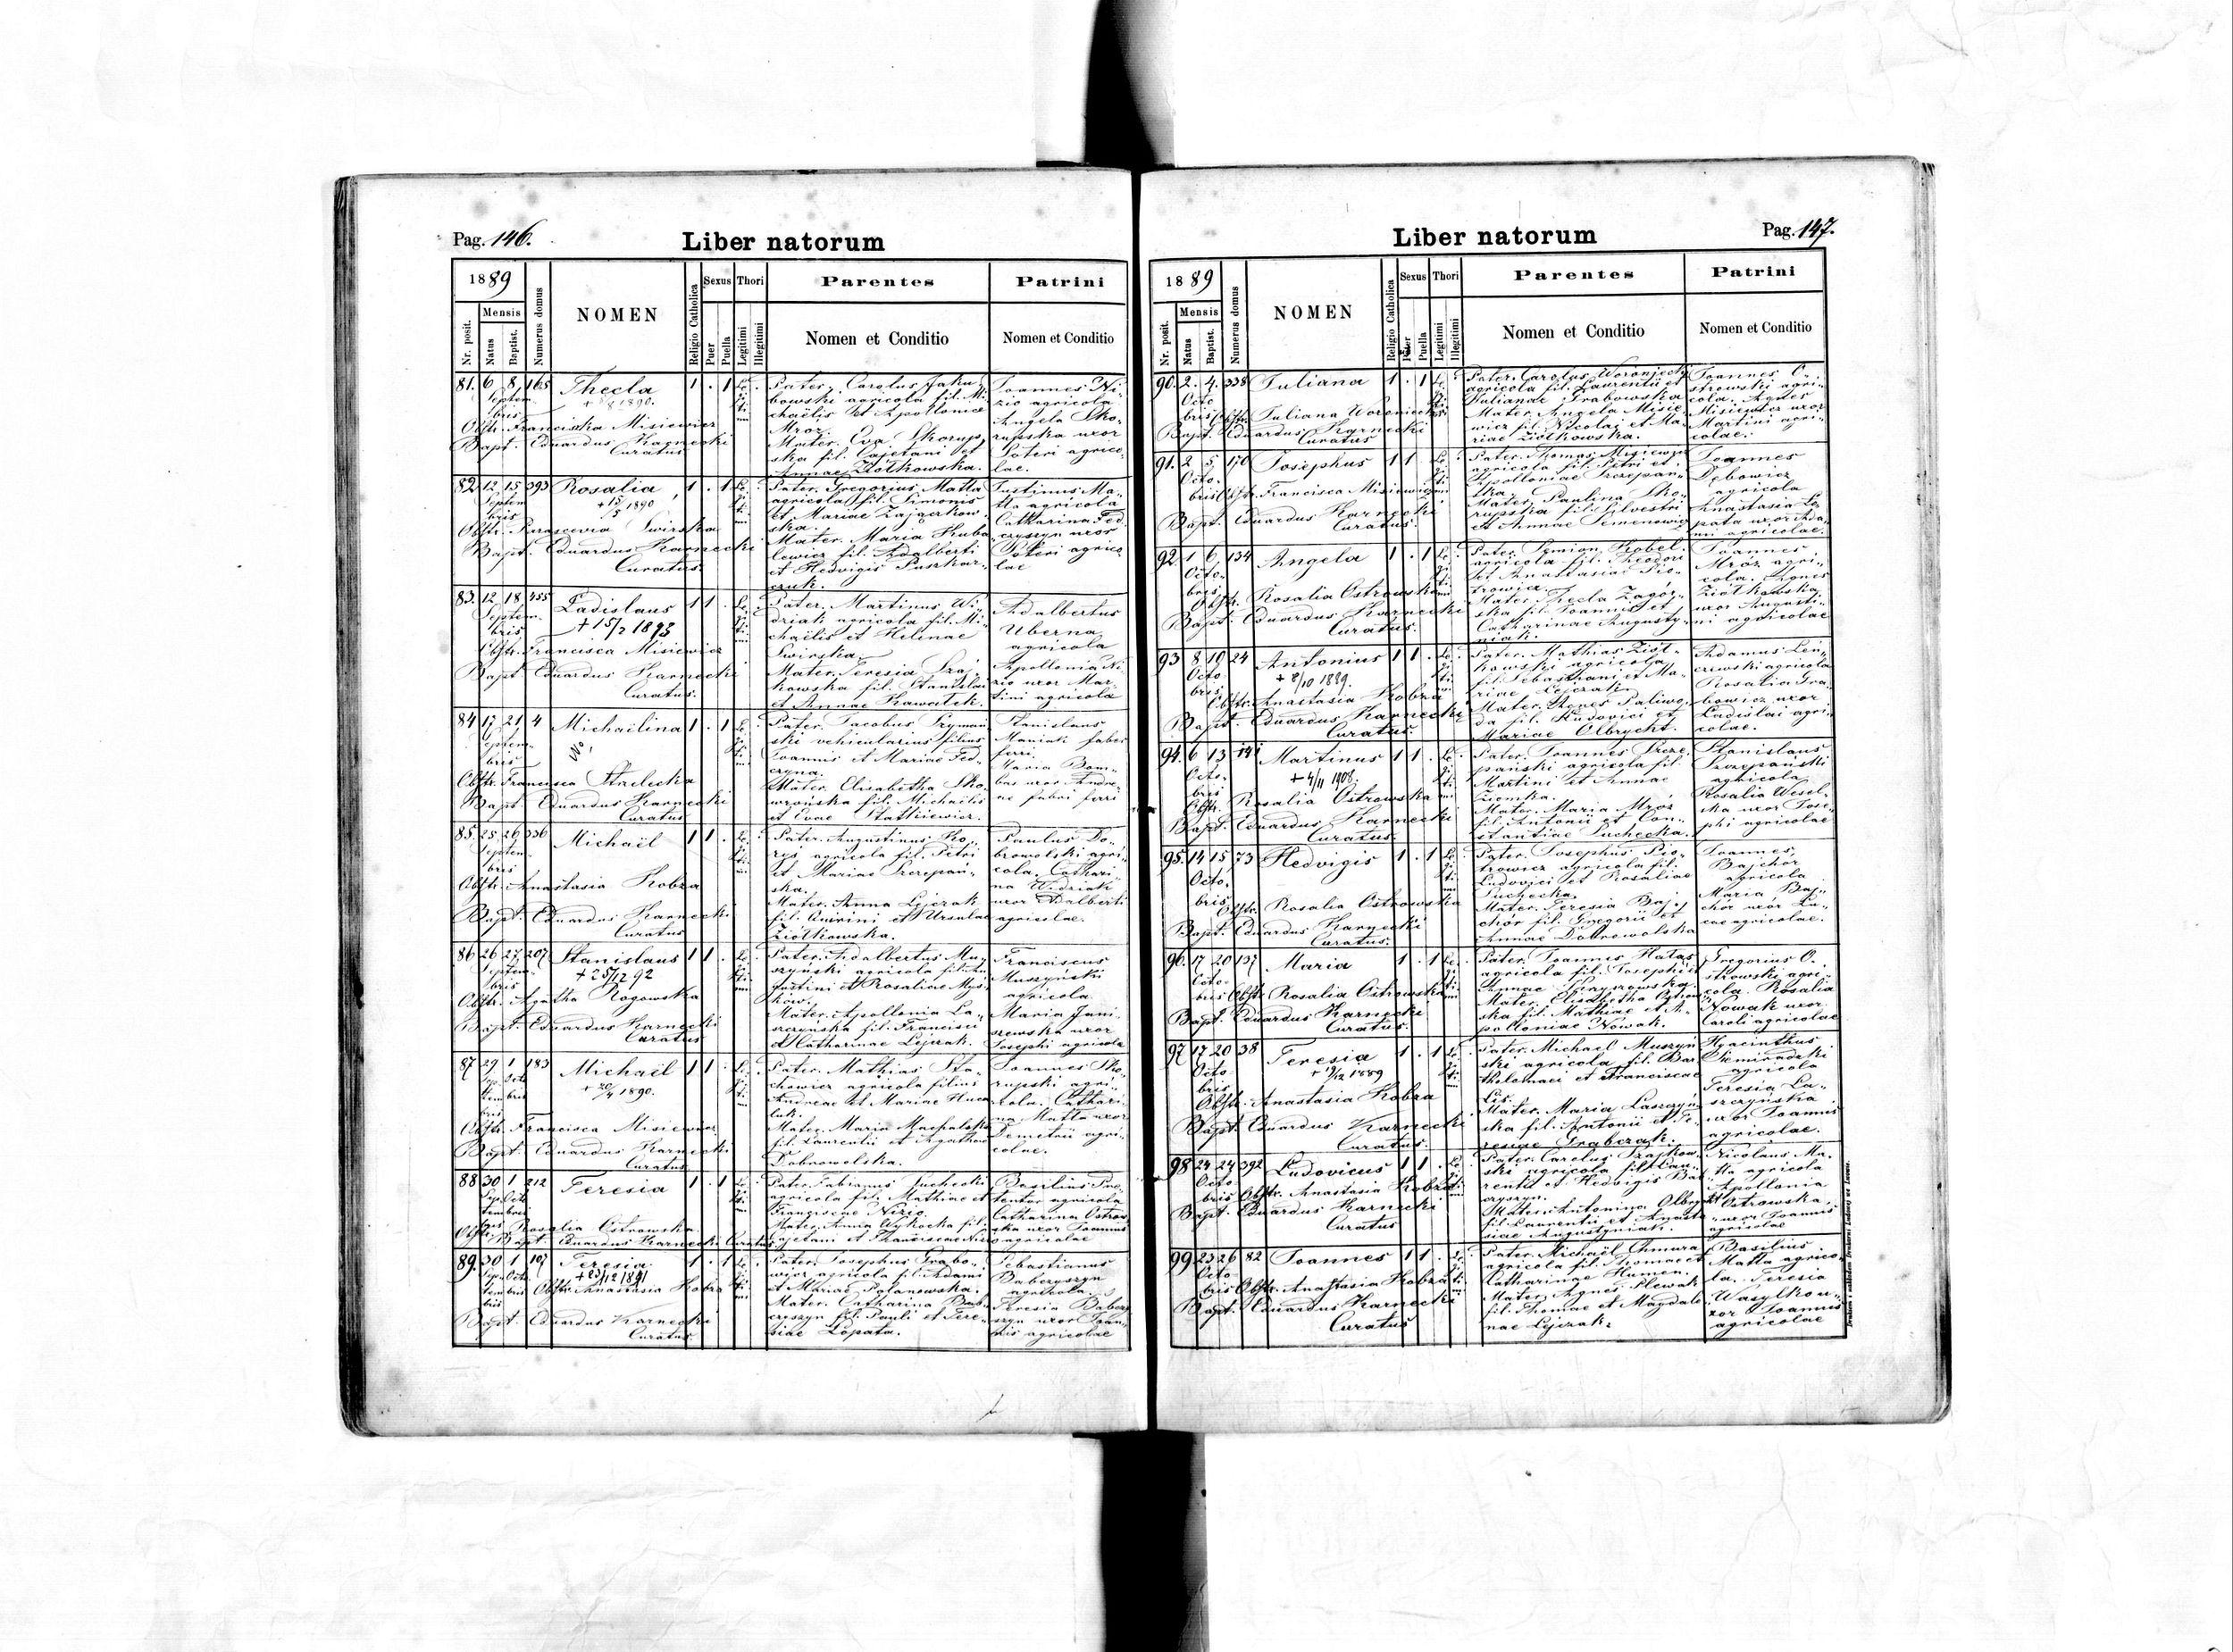 Pag. 146.
Liber natorum
1889
Mensis
Nr. posit.
Natus
Baptist.
Numerus domus
NOMEN
Religio Catholica
Sexus
Puer
Puella
Thori
Legitimi
Illegitimi
Parentes
Nomen et Conditio
Patrini
Nomen et Conditio
81. 6 8 165 Thecla 1 . 1
Septem
bris
Obstr. Franciszka Misiewicz
Bapt. Eduardus Karnecki
Curatus
Pater, Carolus Jaku-
bowski agricola fil. Mi-
chaëlis et Apolloniae
Mroz.
Mater. Eva Skorup-
ska fil. Cajetani et
Annae Ziółkowska.
Joannes Ni-
zio agricola
Angela Sko-
rupska uxor
agrico-
lae.
82. 12 15 393 Rosalia 1 . 1
Septem
bris
1890
Obstr. Parascevia Swirska
Bapt. Eduardus Karnecki
Curatus.
Pater. Gregorius Matła
agricola fil. Simonis
et Mariae Zajączkow-
ska.
Mater. Maria Kuba
lewicz fil. Adalberti
et Hedvigis Puszkar-
czuk.
Justinus Ma-
tła agricola
Catharina Fed-
czyszyn uxor
agrico-
lae
83. 12 18 455 Ladislaus 1 1 .
Septem-
bris
+ 15/2 1893
Obstr. Francisca Misiewicz
Bapt. Eduardus Karnecki
Curatus.
Pater. Martinus Wi-
dziak agricola fil. Mi-
chaëlis et Helenae
Swirska.
Mater. Teresia Szaj-
kowska fil. Stanislai
et Annae Kawalek.
Adalbertus
Uberna
agricola
Apollonia Ni-
zio uxor Mar-
tini agricola
84 17 21 4 Michaëlina 1 . 1
Septem-
bris
Obstr. Francisca Strzelecka
Bapt. Eduardus Karnecki
Curatus
Pater. Jacobus Szyman-
ski vehicularius filius
Joannis et Mariae Fed-
czyna.
Mater. Elisabetha Sko-
wrońska fil. Michaëlis
et Evae Statkiewicz.
Stanislaus
Maniak faber
ferri.
Maria Bom-
bas uxor Andre-
ae fabri ferri
85. 25 26 336 Michaël 1 1 .
Septem-
bris
Obstr. Anastasia Kobza
Bapt. Eduardus Karnecki
Curatus
Pater. Augustinus Ko-
rys agricola fil. Petri
et Mariae Szczepań-
ska.
Mater. Anna Lejczak
fil. Quirini et Ursulae
Ziółkowska.
Paulus Do-
browolski agri-
cola. Cathari-
na Widziak
uxor Adalberti
agricolae.
86 26 27 207 Stanislaus 1 1 .
Septem-
bris
+ 25/12 92
Obstr. Agatha Rogowska
Bapt. Eduardus Karnecki
Curatus
Pater. Adalbertus Mu-
szyński agricola fil. Au-
gustini et Rosaliae Mys-
ków.
Mater. Apollonia La-
szczyńska fil. Francisci
et Catharinae Lejczak.
Franciscus
Muszyński
agricola
Maria Jani-
szewska uxor
Josephi agricola
87 29 1 183 Michaël 1 1 .
Sep- Octo
tem bris
bris
+ 20/4 1890.
Obstr. Francisca Misiewicz
Bapt. Eduardus Karnecki
Curatus
Pater. Mathias Sta-
chowicz agricola filius
Andreae et Mariae Huca-
luk.
Mater. Maria Machalska
fil. Laurentii et Agathae
Dobrowolska.
Joannes Sko-
rupski agri-
cola. Cathari-
na Matła uxor
Demetrii agri-
colae.
88 30 1 212 Teresia 1 . 1
Sep- Octo
tem bris
bris
Obstr. Rosalia Ostrowska
Bapt. Eduardus Karnecki Curatus
Pater. Fabianus Suchecki
agricola fil. Mathiae et
Franciscae Nizio.
Mater. Anna Wysocka fil.
Cajetani et Franciscae Nizio
Basilius
agricola
Catharina Ostrow-
ska uxor Joannis
agricolae
89. 30 1 107 Teresia 1 . 1
Sep- Octo
tem bris
bris
+ 23/12 1891
Obstr. Anastasia Kobza
Bapt. Eduardus Karnecki
Curatus
Pater. Josephus Grabo-
wicz agricola fil. Adami
et Mariae Polanowska.
Mater. Catharina Bab-
czyszyn fil. Pauli et Tere-
siae Łopata.
Sebastianus
Babczyszyn
agricola.
Teresia Babczy-
szyn uxor Joan-
nis agricolae
Liber natorum
Pag. 147.
1889
Mensis
Nr. posit.
Natus
Baptist.
Numerus domus
NOMEN
Religio Catholica
Sexus
Puer
Puella
Thori
Legitimi
Illegitimi
Parentes
Nomen et Conditio
Patrini
Nomen et Conditio
90. 2. 4. 338 Juliana 1 . 1
Octo
bris
Obstr. Juliana Woroniecka
Bapt. Eduardus Karnecki
Curatus
Pater. Carolus Woroniecki
agricola fil. Laurentii et
Julianae Grabowska
Mater. Angela Misie-
wicz fil. Nicolai et Ma-
riae Ziółkowska.
Joannes O-
strowski agri-
cola. Agnes
Misiewicz uxor
Martini agri-
colae.
91. 2 5 170 Josephus 1 1 .
Octo-
bris
Obstr. Francisca Misiewicz
Bapt. Eduardus Karnecki
Curatus.
Pater. Thomas Misiewicz
agricola fil. Petri et
Apolloniae Szczepań-
ska.
Mater. Paulina Sko-
rupska fil. Silvestri
et Annae Semenowicz
Joannes
Dębowicz
agricola
Anastasia Ło-
pata uxor Ada-
mi agricolae.
92. 1 6 134 Angela 1 . 1
Octo-
bris
Obstr. Rosalia Ostrowska
Bapt. Eduardus Karnecki
Curatus.
Pater. Semion Kobel
agricola fil. Theodori
et Anastasiae Pio-
trowicz.
Mater. Thecla Zagór-
ska fil. Joannis et
Catharinae Augusty-
niak.
Joannes
Mroz agri-
cola. Agnes
Ziółkowska
uxor Augusti-
ni agricolae
93 8 10 24 Antonius 1 1 .
Octo
bris
+ 8/10 1889.
Obstr. Anastasia Kobza
Bapt. Eduardus Karnecki
Curatus.
Pater. Mathias Ziół-
kowski agricola
fil. Sebastiani et Ma-
riae Lejczak.
Mater. Agnes Paliwo-
da fil. Ludovici et
Mariae Olbrycht.
Adamus Len-
czewski agricola
Rosalia Gra-
bowicz uxor
Ladislai agri-
colae.
94. 6 13 141 Martinus 1 1 .
Octo-
bris
+ 4/11 1908.
Obstr. Rosalia Ostrowska
Bapt. Eduardus Karnecki
Curatus
Pater. Joannes Szcze-
pański agricola fil.
Martini et Annae
Ziomka.
Mater. Maria Mróz
fil. Antonii et Con-
stantiae Suchecka.
Stanislaus
Szczepański
agricola
Rosalia Wesoł-
ska uxor Jose-
phi agricolae
95. 14 15 73 Hedvigis 1 . 1
Octo-
bris
Obstr. Rosalia Ostrowska
Bapt. Eduardus Karnecki
Curatus.
Pater. Josephus Pio-
trowicz agricola fil.
Ludovici et Rosaliae
Suchecka.
Mater. Teresia Baj-
chór fil. Gregorii et
Annae Dobrowolska
Joannes
Bajchór
agricola
Maria Baj-
chór uxor Lu-
cae agricolae.
96. 17 20 137 Maria 1 . 1
Octo-
bris
Obstr. Rosalia Ostrowska
Bapt. Eduardus Karnecki
Curatus.
Pater. Joannes Hałas
agricola fil. Josephi et
Annae
Mater. Elisabetha Ostrow-
ska fil. Mathiae et A-
polloniae Nowak.
Gregorius O-
strowski agri-
cola. Rosalia
Nowak uxor
Caroli agricolae
97 17 20 38 Teresia 1 . 1
Octo
bris
12 1889
Obstr. Anastasia Kobza
Bapt. Eduardus Karnecki
Curatus.
Pater. Michael Muszyń-
ski agricola fil. Bar-
tholomaei et Franciscae
Lis.
Mater. Maria Laszczyń-
ska fil. Antonii et Te-
resiae Grabczak.
Hyacinthus
Niemiradzki
agricola
Teresia La-
szczyńska
uxor Joannis
agricolae.
98 24 24 392 Ludovicus 1 1 .
Octo-
bris
Obstr. Anastasia Kobza
Bapt. Eduardus Karnecki
Curatus
Pater. Carolus Szajkow-
ski agricola fil. Lau-
rentii et Hedvigis Bab-
czyszyn.
Mater. Antonina Olbrycht
fil. Laurentii et Anasta-
siae Augustyniak.
Nicolaus Ma-
tła agricola
Apollonia
Ostrowska,
uxor Joannis
agricolae
99 23 26 82 Joannes 1 1 .
Octo
bris
Obstr. Anastasia Kobza
Bapt. Eduardus Karnecki
Curatus
Pater. Michaël Chmura
agricola fil. Thomae et
Catharinae Humen.
Mater. Agnes Plewak
fil. Thomae et Magdale-
nae Lejczak.
Basilius
Matła agrico-
la. Teresia
Wasylkow
uxor Joannis
agricolae